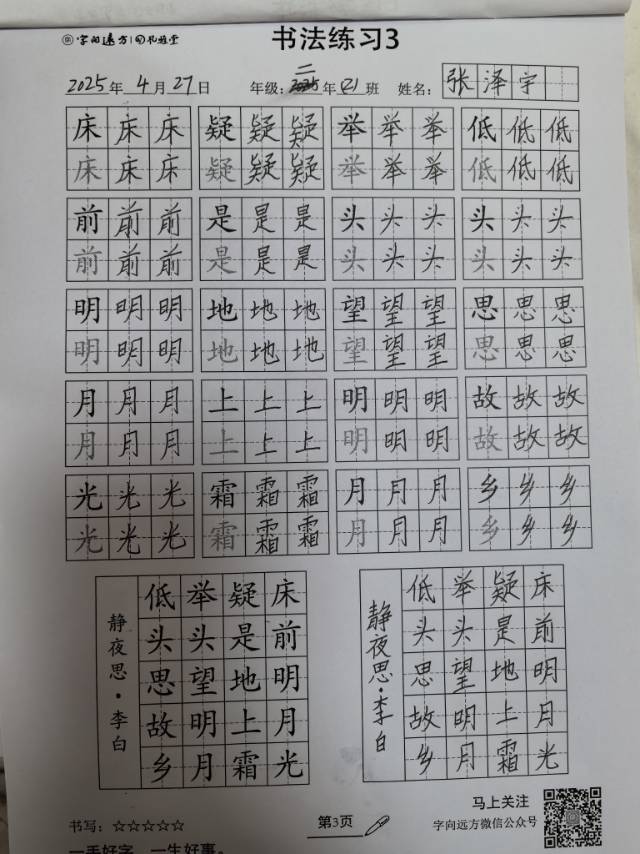 字向远方 礼驰堂
书法练习3
2025年 4月27日 年级:二年(4)班 姓名: 张泽宇
床床床 疑疑疑 举举举 低低低
床床床 疑疑疑 举举举 低低低
前前前 是是是 头头头 头头头
前前前 是是是 头头头 头头头
明明明 地地地 望望望 思思思
明明明 地地地 望望望 思思思
月月月 上上上 明明明 故故故
月月月 上上上 明明明 故故故
光光光 霜霜霜 月月月 乡乡乡
光光光 霜霜霜 月月月 乡乡乡
床前明月光
疑是地上霜
举头望明月
低头思故乡
静夜思·李白
床前明月光
疑是地上霜
举头望明月
低头思故乡
静夜思·李白
书写:☆☆☆☆☆
第3页
马上关注
字向远方微信公众号
一手好字 一生好事。